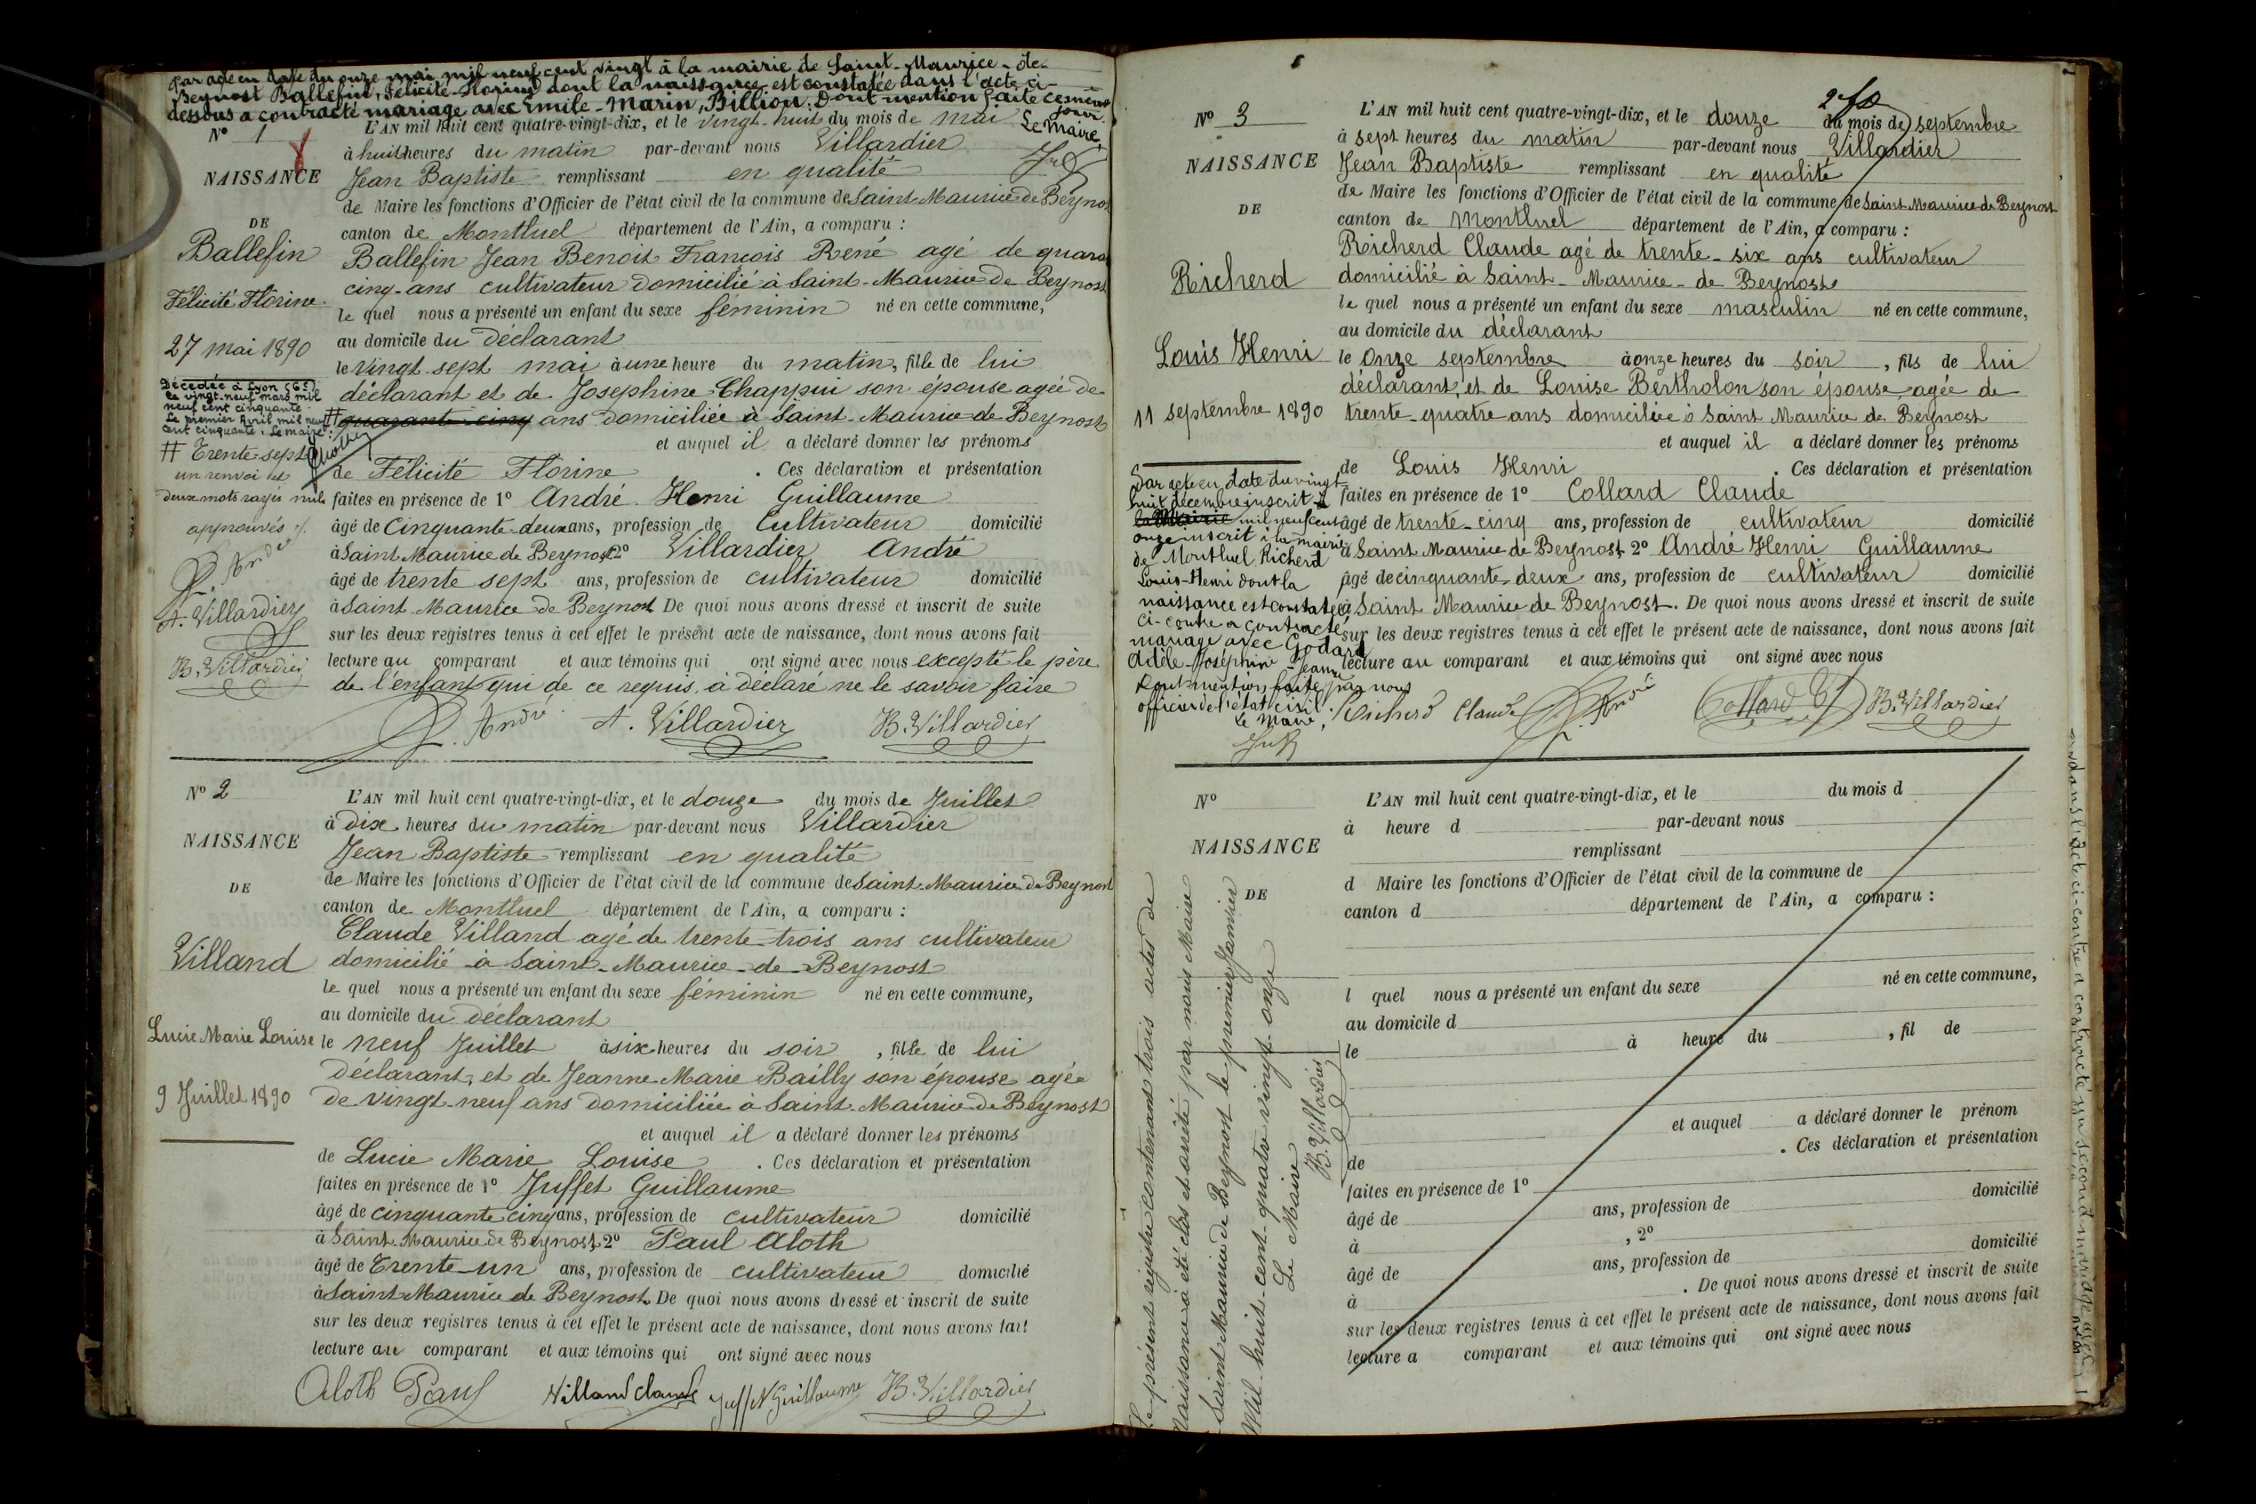 par acte en date du onze mai mil neuf cent vingt à la mairie de Saint-Maurice-de-
Beynost Ballefin, Félicité-Florine dont la naissance est constatée dans l'acte ci-
dessous a contracté mariage avec Emile-Marin, Billion. Dont mention faite ce même
jour.
Le Maire,
N° 1
NAISSANCE
DE
Ballefin
Félicité Florine
27 mai 1890
Décédée à Lyon (6e)
le vingt-neuf mars mil
neuf cent cinquante.
Le premier Avril mil neuf
cent cinquante. Le maire:
# Trente sept
un renvoi et
deux mots rayés nuls
approuvés
André
A. Villardier
B. Villardier
L'AN mil huit cent quatre-vingt-dix, et le vingt-huit du mois de mai
à huit heures du matin par-devant nous Villardier
Jean Baptiste remplissant en qualité
de Maire les fonctions d'Officier de l'état civil de la commune de Saint Maurice de Beynost
canton de Montluel département de l'Ain, a comparu :
Ballefin Jean Benoit François René agé de quara
cinq-ans cultivateur domicilié à Saint-Maurice de Beynost
le quel nous a présenté un enfant du sexe féminin né en cette commune,
au domicile du déclarant
le vingt sept mai à une heure du matin, fille de lui
déclarant et de Josephine Chappui son épouse agée de
# quarant cinq ans domiciliée à Saint-Maurice de Beynost
et auquel il a déclaré donner les prénoms
de Félicité Florine . Ces déclaration et présentation
faites en présence de 1° André Henri Guillaume
âgé de Cinquante deux ans, profession de Cultivateur domicilié
à Saint Maurice de Beynost 2° Villardier André
âgé de trente sept ans, profession de cultivateur domicilié
à Saint Maurice de Beynost De quoi nous avons dressé et inscrit de suite
sur les deux registres tenus à cet effet le présent acte de naissance, dont nous avons fait
lecture au comparant et aux témoins qui ont signé avec nous excepté le père
de l'enfant qui de ce requis à déclaré ne le savoir faire
André A. Villardier B. Villardier
N° 2
NAISSANCE
DE
Villand
Lucie Marie Louise
9 Juillet 1890
L'AN mil huit cent quatre-vingt-dix, et le douze du mois de Juillet
à dix heures du matin par-devant nous Villardier
Jean Baptiste remplissant en qualité
de Maire les fonctions d'Officier de l'état civil de la commune de Saint Maurice de Beynost
canton de Montluel département de l'Ain, a comparu :
Claude Villand agé de trente-trois ans cultivateur
domicilié à Saint-Maurice-de-Beynost
le quel nous a présenté un enfant du sexe féminin né en cette commune,
au domicile du déclarant
le neuf Juillet à six heures du soir , fille de lui
déclarant, et de Jeanne Marie Bailly son épouse agée
de vingt-neuf ans domiciliée à Saint-Maurice de Beynost
et auquel il a déclaré donner les prénoms
de Lucie Marie Louise . Ces déclaration et présentation
faites en présence de 1° Juffet Guillaume
âgé de cinquante cinq ans, profession de cultivateur domicilié
à Saint Maurice de Beynost, 2° Paul Aloth
âgé de Trente-un ans, profession de cultivateur domicilié
à Saint Maurice de Beynost De quoi nous avons dressé et inscrit de suite
sur les deux registres tenus à cet effet le présent acte de naissance, dont nous avons fait
lecture au comparant et aux témoins qui ont signé avec nous
Aloth Paul Villand Claude Juffet Guillaume B. Villardier
N° 3
NAISSANCE
DE
Richerd
Louis Henri
11 septembre 1890
Par acte en date du vingt
huit décembre inscrit à
la Mairie mil neuf cent
onze inscrit à la mairie
de Montluel Richerd
Louis-Henri dont la
naissance est constatée
ci-contre a contracté
mariage avec Godard
Adèle-Joséphine-Jeanne
Dont mention faite par nous
officier de l'état civil
Le Maire,
L'AN mil huit cent quatre-vingt-dix, et le douze du mois de septembre
à sept heures du matin par-devant nous Villardier
Jean Baptiste remplissant en qualité
de Maire les fonctions d'Officier de l'état civil de la commune de Saint Maurice de Beynost
canton de Montluel département de l'Ain, a comparu :
Richerd Claude agé de trente-six ans cultivateur
domicilié à Saint-Maurice-de Beynost
le quel nous a présenté un enfant du sexe masculin né en cette commune,
au domicile du déclarant
le Onze septembre à onze heures du soir , fils de lui
déclarant, et de Louise Bertholon son épouse, agée de
trente-quatre ans domiciliée à Saint Maurice de Beynost
et auquel il a déclaré donner les prénoms
de Louis Henri . Ces déclaration et présentation
faites en présence de 1° Collard Claude
âgé de trente-cinq ans, profession de cultivateur domicilié
à Saint Maurice de Beynost 2° André Henri Guillaume
âgé de cinquante-deux ans, profession de cultivateur domicilié
à Saint Maurice de Beynost. De quoi nous avons dressé et inscrit de suite
sur les deux registres tenus à cet effet le présent acte de naissance, dont nous avons fait
lecture au comparant et aux témoins qui ont signé avec nous
Richerd Claude André Collard Cl B. Villardier
N°
NAISSANCE
DE
L'AN mil huit cent quatre-vingt-dix, et le du mois d
à heure d par-devant nous
remplissant
d Maire les fonctions d'Officier de l'état civil de la commune de
canton d département de l'Ain, a comparu :
l quel nous a présenté un enfant du sexe né en cette commune,
au domicile d
le à heure du , fil de
et auquel a déclaré donner le prénom
de . Ces déclaration et présentation
faites en présence de 1°
âgé de ans, profession de domicilié
à , 2°
âgé de ans, profession de domicilié
à . De quoi nous avons dressé et inscrit de suite
sur les deux registres tenus à cet effet le présent acte de naissance, dont nous avons fait
lecture a comparant et aux témoins qui ont signé avec nous
Le présent registre contenant trois actes de
Naissance a été clos et arrêté par nous Maire
de Saint Maurice de Beynost le premier Janvier
Mil-huit-cent-quatre vingt-onze
Le Maire
B. Villardier
dans l'acte ci-contre a contracté un second mariage avec